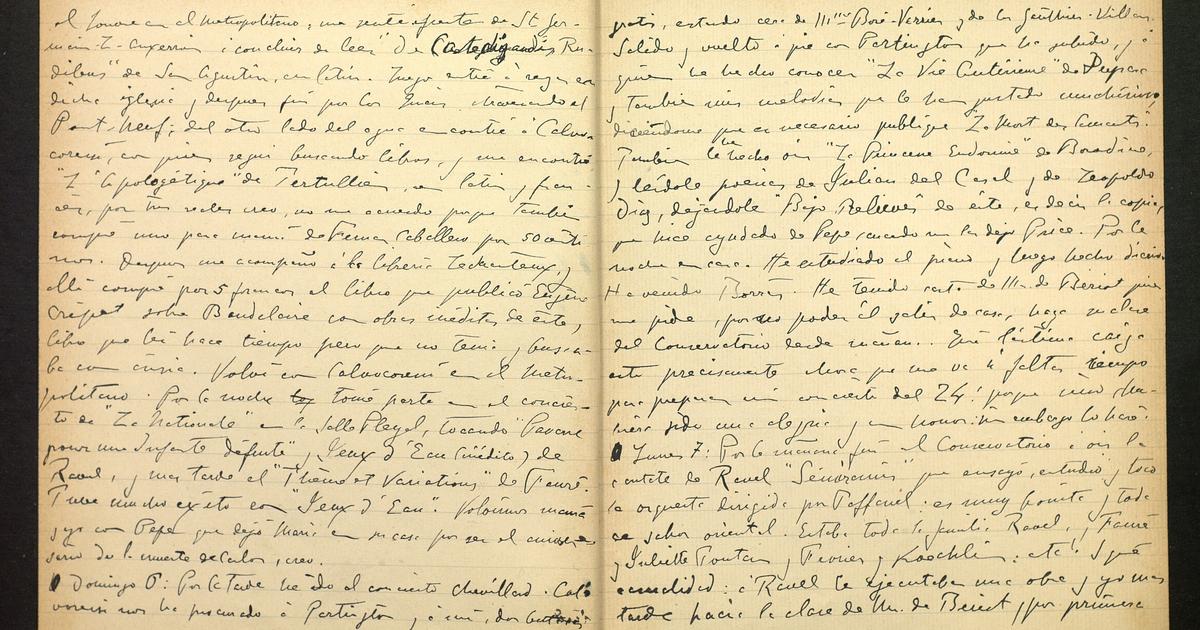 el Louvre en el Metropolitano; me senté enfrente de St. Ger-
main-L'-Auxerrois i concluí de leer "De Catechizandis Ru-
dibus" de San Agustín, en latín. Luego entré à rezar en
dicha iglesia y después fuí por los quais, atravesando el
Pont-Neuf; del otro lado del agua encontré à Calvo-
coressi, con quien seguí buscando libros, y me encontré
"L'Apologétique" de Tertullien, en latín y fran-
cés, por tres reales creo, no me acuerdo porque también
compré uno para mamá de Fernan Caballero por 50 cénti-
mos. Después me acompañó à la librería Lechanteux, y
allí compré por 5 francos el libro que publicó Eugène
Crépet sobre Baudelaire con obras inéditas de éste,
libro que leí hace tiempo pero que no tenía y busca-
ba con ánsia. Volví con Calvocoressi en el Metro-
politano. Por la noche tomé parte en el concier-
to de "La Nationale" en la Salle Pleyel, tocando "Pavane
pour une Infante défunte", y "Jeux d'Eau" (inédito) de
Ravel, y mas tarde el "Thème et Variations" de Fauré.
Tuve mucho exito con "Jeux d'Eau". Volvimos mamá
y yo con Pepe que dejó María en su casa por ser el aniver-
sario de la muerte de Carlos, creo.
Domingo 6: Por la tarde he ido al concierto Chevillard. Calvo-
coressi nos ha procurado à Partington, y à mí, dos
gratis, estando cerca de Mlle Boré-Verrier y de los Gauthier-Villars.
Salido y vuelto à pie con Partington que ha subido, y à
quien he hecho conocer "La Vie Antérieure" de Duparc
y también mis melodías que le han gustado muchísimo,
diciéndome que es necesario publique "La Mort des Amants".
También le he hecho oir "La Princesse Endormie" de Borodine,
y leídole poesías de Julian del Casal y de Leopoldo
Díaz, dejándole "Bajo Relieves" de éste, es decir la copia,
que hice ayudado de Pepe, cuando me la dejó Price. Por la
noche en casa. He estudiado el piano y luego hecho diario.
Ha venido Borrás. He tenido carta de M. de Bériot quien
me pide, por no poder él salir de casa, haga su clase
del Conservatorio desde mañana. Qué lástima caiga
esto precisamente ahora que me va à faltar tiempo
para preparar mi concierto del 24! porque sinó hu-
biera sido una alegría y un honor: sin embargo lo haré.
Lunes 7: Por la mañana fuí al Conservatorio à oir la
cantate de Ravel "Sémiramis" que ensayó, estudió y tocó
la orquesta dirigida por Taffanel: es muy bonita y toda
de sabor oriental. Estaba toda la familia Ravel, y Fauré
y Juliette Toutain, y Février y Koechlin: etc! Y qué
casualidad: à Ravel le ejecutaban una obra, y yo mas
tarde hacía la clase de M. de Bériot y por primera